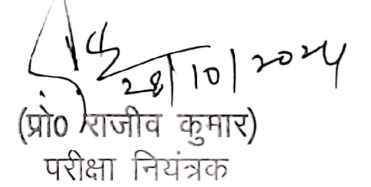 28/10/2024
(प्रो0 राजीव कुमार)
परीक्षा नियंत्रक